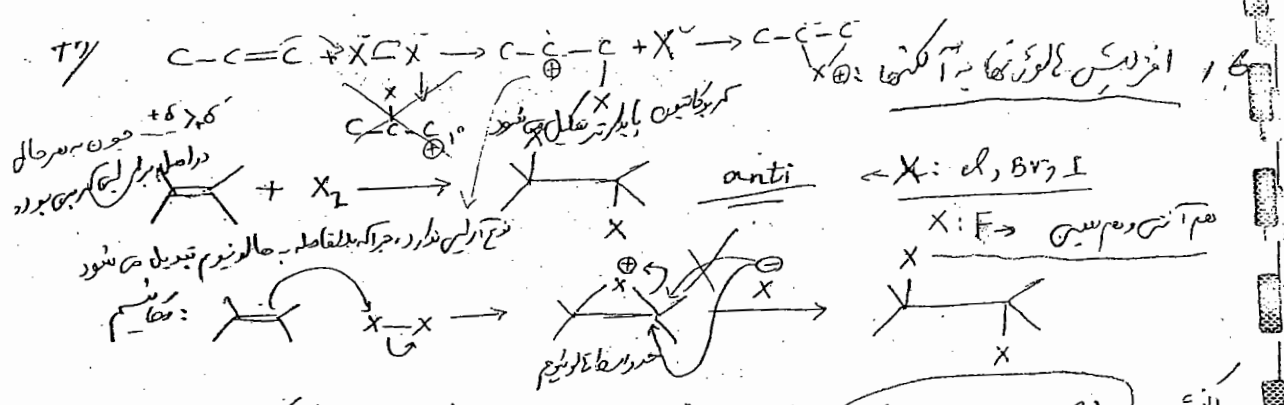 افزایش هالوژنها به آلکنها:
C-C=C + X-X → C-C-C + X → C-C-C
⊕ X X⊕
X
C-C-C ⊕ 1°
کربوکاتیون پایدارتر تشکیل می شود
چون به هر حال
+ X₂ → X X anti ← X: Cl, Br, I
X: F → هم آنتی و هم سین
نوع آرایی ندارد، چرا که بلافاصله به هالونیوم تبدیل می شود
مکانیسم:
X-X → X⊕ X⊖ → X X
حد واسط هالونیوم